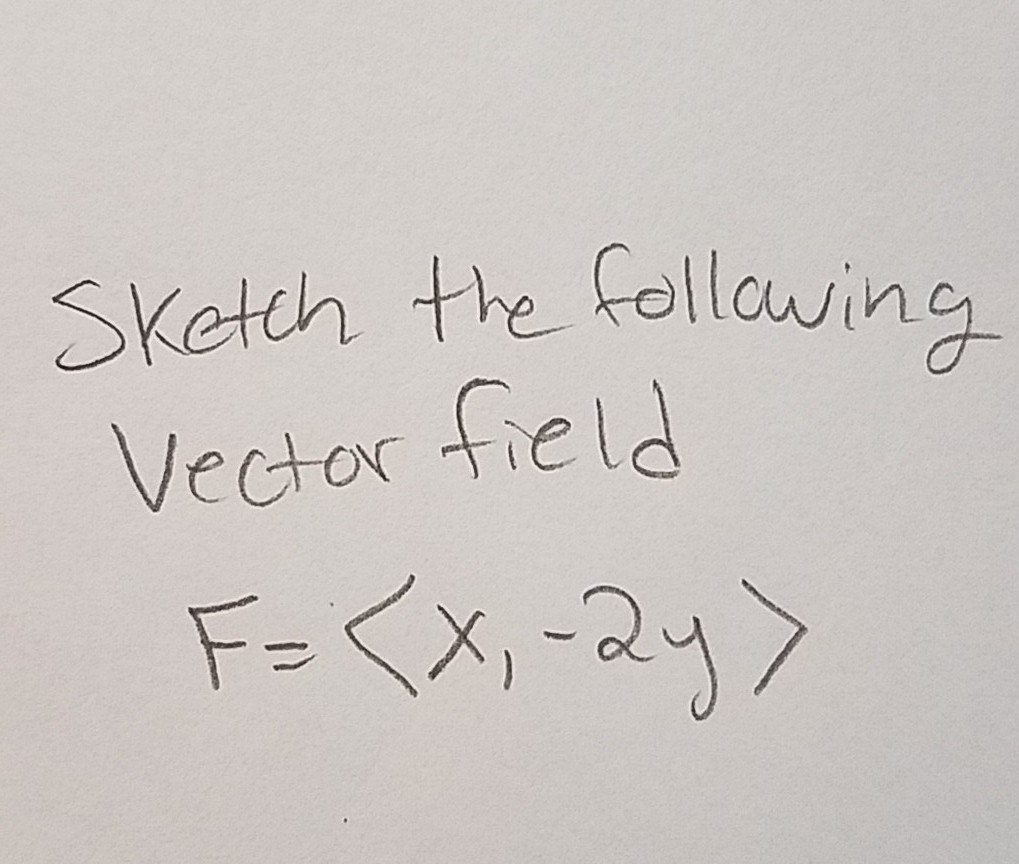 Sketch the following
Vector field
F=<x,-2y>